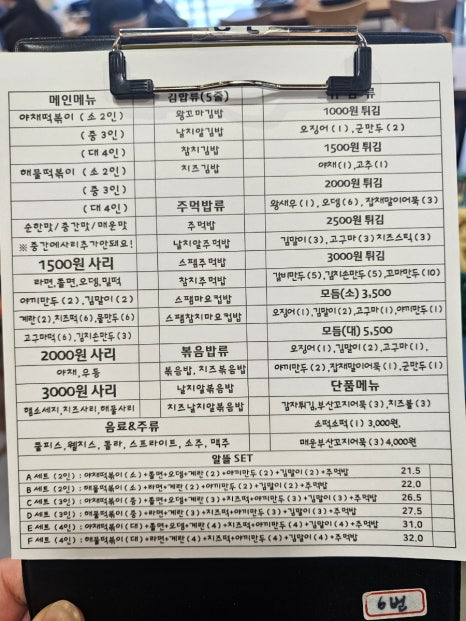 메인메뉴
야채떡볶이 ( 소 2인 )
( 중 3인 )
( 대 4인 )
해물떡볶이 ( 소 2인 )
( 중 3인 )
( 대 4인 )
순한맛/중간맛/매운맛
※ 중간에사리추가안돼요!
1500원 사리
라면,쫄면,오뎅,밀떡
야끼만두(2), 김말이(2)
계란(2),치즈떡(6),물만두(6)
고구마떡(6), 김치손만두(3)
2000원 사리
야채,우동
3000원 사리
햄소세지,치즈사리,해물사리
김밥류(5줄)
왕꼬마김밥
날치알김밥
참치김밥
치즈김밥
주먹밥류
주먹밥
날치알주먹밥
스팸주먹밥
참치주먹밥
스팸마요컵밥
스팸참치마요컵밥
볶음밥류
볶음밥, 치즈볶음밥
날치알볶음밥
치즈날치알볶음밥
1000원 튀김
오징어(1), 군만두(2)
1500원 튀김
야채(1),고추(1)
2000원 튀김
왕새우(1), 오뎅(6), 잡채말이어묵(3)
2500원 튀김
김말이(3), 고구마(3)치즈스틱(3)
3000원 튀김
갈비만두(5),김치손만두(5),꼬마만두(10)
모듬(소) 3,500
오징어(1), 김말이(2),고구마(1),야끼만두(1)
모듬(대) 5,500
오징어(1), 김말이(2),고구마(1),
야끼만두(2),잡채말이어묵(1),군만두(1)
단품메뉴
감자튀김,부산꼬지어묵(3),치즈볼(3)
소떡소떡(1) 3,000원,
매운부산꼬지어묵(3)4,000원
음료&주류
쿨피스,웰치스, 콜라, 스프라이트, 소주, 맥주
알뜰 SET
A 세트 (2인) : 야채떡볶이(소)+쫄면+오뎅+계란(2)+야끼만두(2)+김말이(2)+주먹밥 21.5
B 세트 (2인) : 해물떡볶이(소)+라면+계란(2)+야끼만두(2)+김말이(2)+주먹밥 22.0
C 세트 (3인) : 야채떡볶이(중)+쫄면+오뎅+계란(3)+치즈떡+야끼만두(3)+김말이(3)+주먹밥 26.5
D 세트 (3인) : 해물떡볶이(중)+라면+계란(3)+치즈떡+야끼만두(3)+김말이(3)+주먹밥 27.5
E 세트 (4인) : 야채떡볶이(대)+쫄면+오뎅+계란(4)+치즈떡+야끼만두(4)+김말이(4)+주먹밥 31.0
F 세트 (4인) : 해물떡볶이(대)+라면+계란(4)+치즈떡+야끼만두(4)+김말이(4)+주먹밥 32.0
6번